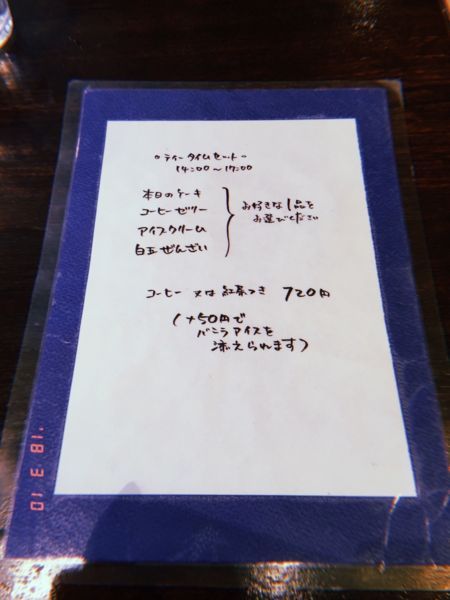 。ティータイムセット。
14:00～17:00
本日のケーキ
コーヒーゼリー
アイスクリーム
白玉ぜんざい
お好きな1品を
お選びください
コーヒー 又は 紅茶つき 720円
(+50円で
バニラアイスを
添えられます)
'18 3 10